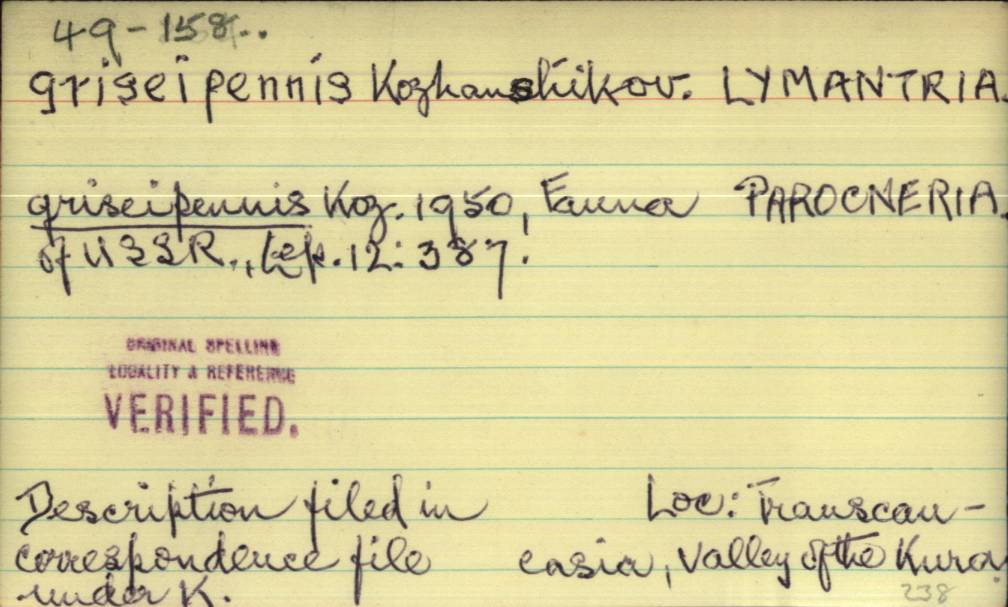 49-158..
griseipennis Kozhanshikov. LYMANTRIA.
griseipennis Koz. 1950, Fauna PAROCNERIA.
of USSR., Lep. 12: 387.
ORIGINAL SPELLING
LOCALITY & REFERENCE
VERIFIED.
Description filed in
correspondence file
under K.
Loc: Transcau-
casia, Valley of the Kura.
238